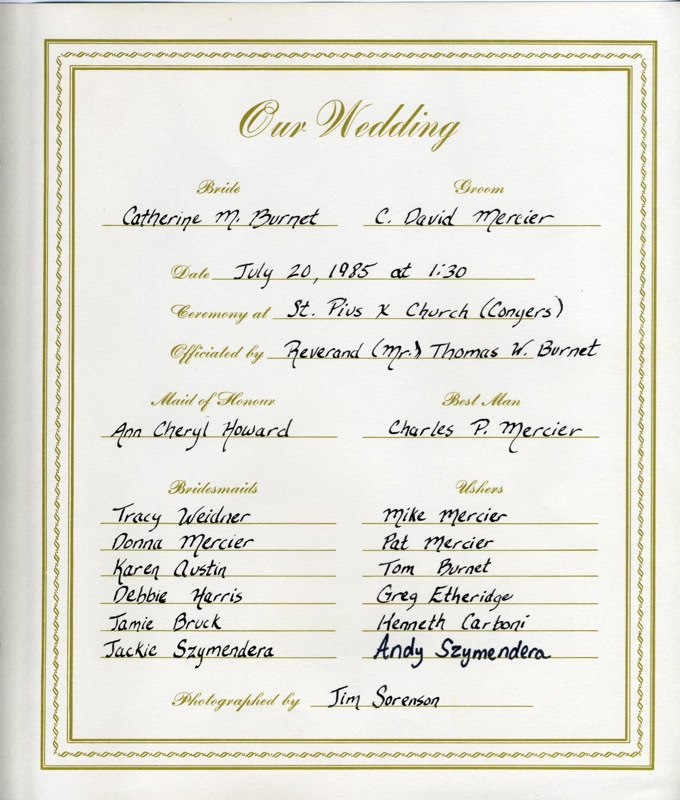 Our Wedding
Bride Groom
Catherine M. Burnet C. David Mercier
Date July 20, 1985 at 1:30
Ceremony at St. Pius X Church (Conyers)
Officiated by Reverand (Mr.) Thomas W. Burnet
Maid of Honour Best Man
Ann Cheryl Howard Charles P. Mercier
Bridesmaids Ushers
Tracy Weidner Mike Mercier
Donna Mercier Pat Mercier
Karen Austin Tom Burnet
Debbie Harris Greg Etheridge
Jamie Bruck Kenneth Carboni
Jackie Szymendera Andy Szymendera
Photographed by Jim Sorenson